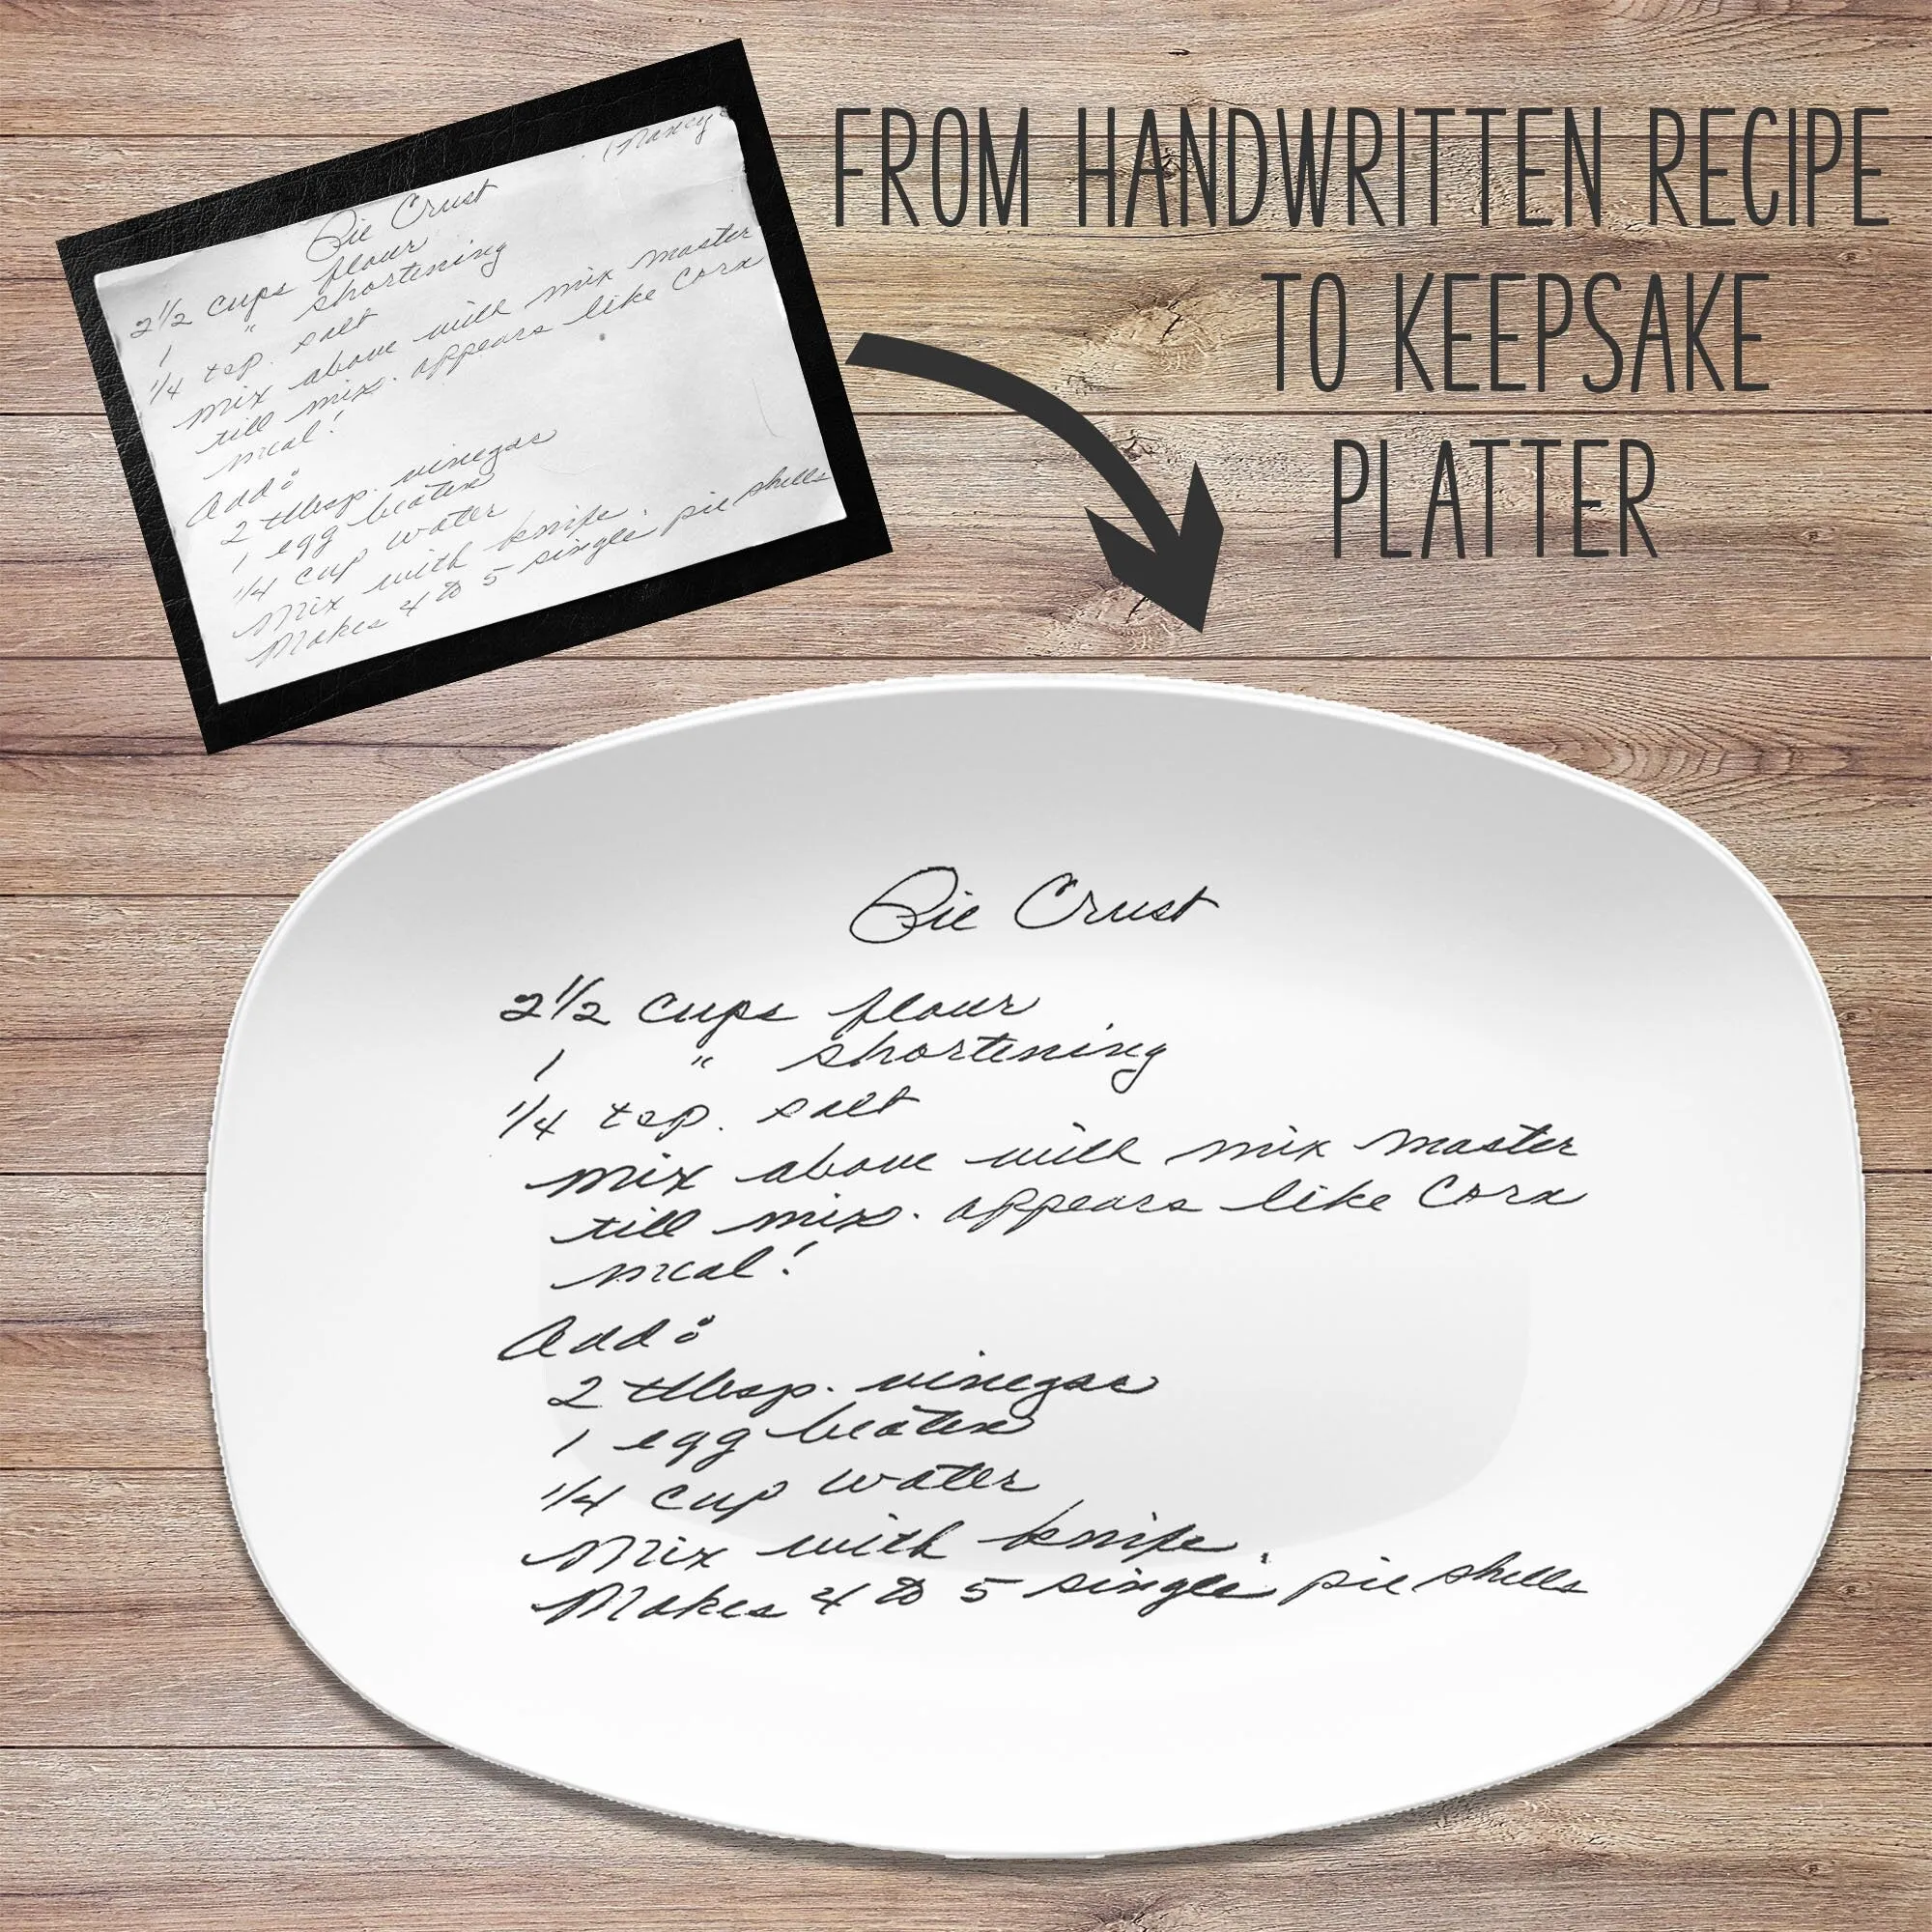 (Nancy
Pie Crust
2 1/2 cups flour
1 " shortening
1/4 tsp. salt
mix above with mix master
till mix. appears like corn
meal!
Add:
2 tblesp. vinegar
1 egg beaten
1/4 cup water
Mix with knife.
Makes 4 to 5 single pie shells
FROM HANDWRITTEN RECIPE
TO KEEPSAKE
PLATTER
Pie Crust
2 1/2 cups flour
1 " shortening
1/4 tsp. salt
mix above with mix master
till mix. appears like Corn
meal!
Add:
2 tblesp. vinegar
1 egg beaten
1/4 cup water
Mix with knife.
Makes 4 to 5 single pie shells